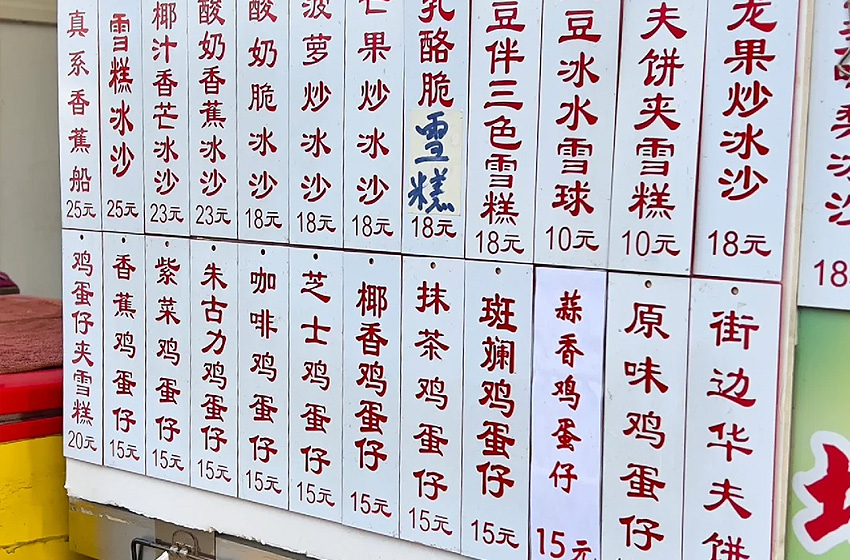 真系香蕉船
25元
雪糕冰沙
25元
椰汁香芒冰沙
23元
酸奶香蕉冰沙
23元
酸奶脆冰沙
18元
菠萝炒冰沙
18元
芒果炒冰沙
18元
乳酪脆雪糕
18元
豆伴三色雪糕
18元
豆冰水雪球
10元
夫饼夹雪糕
10元
龙果炒冰沙
18元
冰沙
18
鸡蛋仔夹雪糕
20元
香蕉鸡蛋仔
15元
紫菜鸡蛋仔
15元
朱古力鸡蛋仔
15元
咖啡鸡蛋仔
15元
芝士鸡蛋仔
15元
椰香鸡蛋仔
15元
抹茶鸡蛋仔
15元
斑斓鸡蛋仔
15元
蒜香鸡蛋仔
15元
原味鸡蛋仔
街边华夫饼